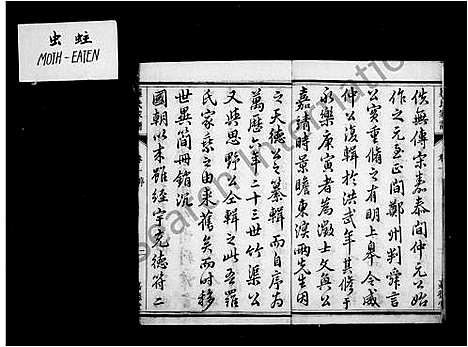 虫蛀
MOTH-EATEN
佚無傳宋嘉泰間仲元公始
作之元至正間鄭州判辭言
公實重脩之有明上舉令威
仲公復輯於洪武年其修于
永樂庚寅者為激士文與公
嘉靖時景瞻東濱兩先生因
之天德公之纂輯而自序為
萬歷八年二十三世竹渠公
又與思野公全輯之此吾羅
氏家乘之由來舊矣而時移
世異簡冊銷沉
國朝以來雖經宇充德符二